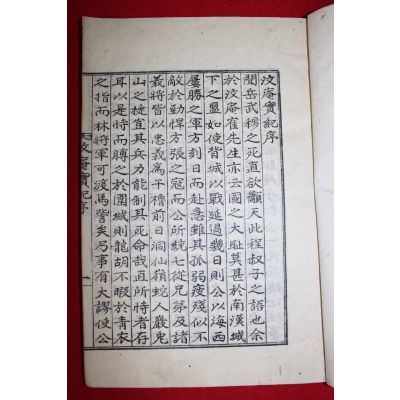 汶庵實紀序
閱岳武穆之死直欲籲天此程叔子之語也余
於汶庵崔先生亦云國之大恥莫甚於南漢城
下之盟如使背城以戰延過幾日則公以海西
屢勝之軍方刻日而赴急雖其孤弱疲殘似不
敵於勁悍方張之寇而公所統七從兄弟及諸
義將皆以忠義爲干櫓前日洞仙嶺蛇人巖兇
山之捷宜其兵力能制其死命哉直所恃者存
耳以是恃而賻之於圍城則龍胡不暇於青衣
之指而林將軍可渡馬訾矣乃事有大謬使公
汶庵實紀序
一